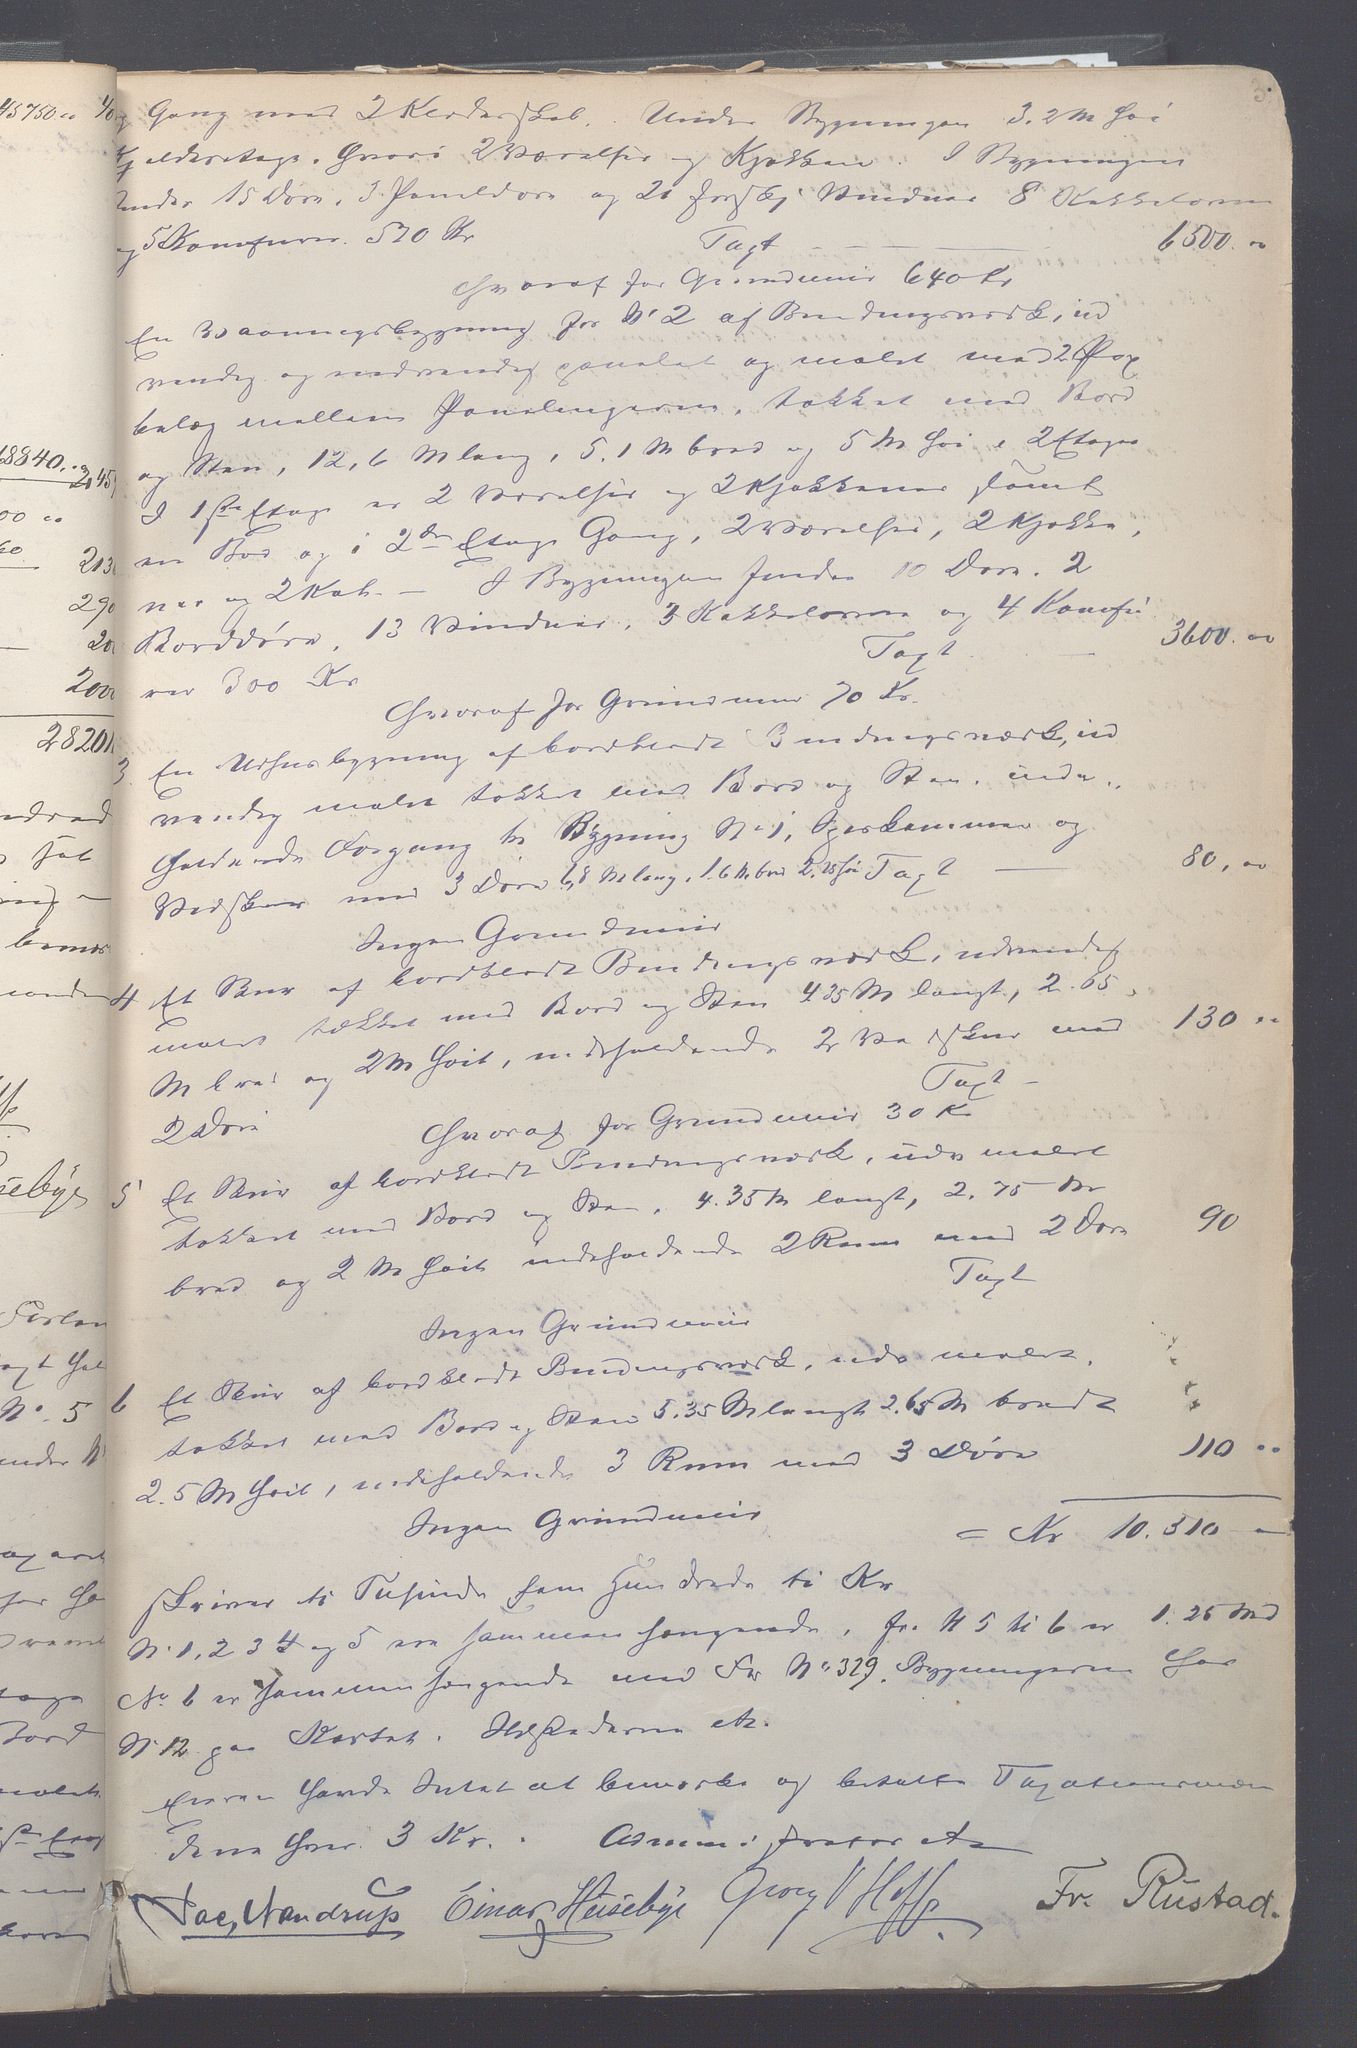 45750.00
Gang med 2 Klædeskab. Under Bygningen 3.2 M høi
Kjelderetage, hvori 2 Værelser og Kjøkken. I Bygningen
findes 15 Døre, 3 Paneldøre og 21 forskj Vinduer 8 Kakkelovne
og 5 Komfurer. 520 Kr Taxt 6500.00
Hvoraf for Grundmur 640 Kr
En Vaaningsbygning for No 2 af Bindingsværk, ud
vendig og indvendig panelet og malet med 2 Pap
belæg mellem Panelingerne, tækket med Bord
og Sten, 12,6 M lang, 5.1 M bred og 5 M høi i 2 Etager
I 1ste Etage er 2 Værelser og 2 Kjøkkener samt
en Bod og i 2den Etage Gang, 2 Værelser, 2 Kjøkke,
ner og 2 Kot. — I Bygningen findes 10 Døre, 2
Borddøre, 13 Vinduer, 3 Kakkelovne og 4 Komfu
rer 300 Kr Taxt 3600.00
Hvoraf for Grundmur 70 Kr.
3. En Udhusbygning af bordklædt Bindingsværk, ud
vendig malet tækket med Bord og Sten, inde,,
holdende Forgang til Bygning No 1, Spiskammer og
Vedskur med 3 Døre 6,8 M lang, 1.6 M bred 2.25 høi Taxt 80,00
Ingen Grundmur
4 Et Skur af bordklædt Bindingsværk, udvendig
malet tækket med Bord og Sten 4.35 M langt, 2.65
M bred og 2 M høit, indeholdende 2 Vedskur med 130 00
2 Døre Taxt
Hvoraf for Grundmur 30 Kr
5 Et Skur af bordklædt Bindingsværk, udv malet
tækket med Bord og Sten, 4.35 M langt, 2.75 M
bred og 2 M høit indeholdende 2 Rum med 2 Døre 90
Taxt
Ingen Grundmur
6 Et Skur af bordklædt Bindingsværk, udv malet,
tækket med Bord og Sten 5.35 M langt 2.65 M bredt
2.5 M høit, indeholdende 3 Rum med 3 Døre 110 00
Ingen Grundmur
= Kr 10.510
skriver ti Tusinde fem Hundrede ti Kr
No 1, 2 3 4 og 5 ere sammenhængende, fra No 5 til 6 er 1.25 M
No 6 er sammenhængende med No 329. Bygningerne har
No 12 paa Kartet. Ildstederne etc.
Eieren havde Intet at bemærke og betalte Taxationsmæn
dene hver 3 Kr. Administrator etc
Jac, Nandrup Einar Heisebye Georg V Hoff Fr. Rustad.
68840.00
2130
290
200
2000
28201
No. 5